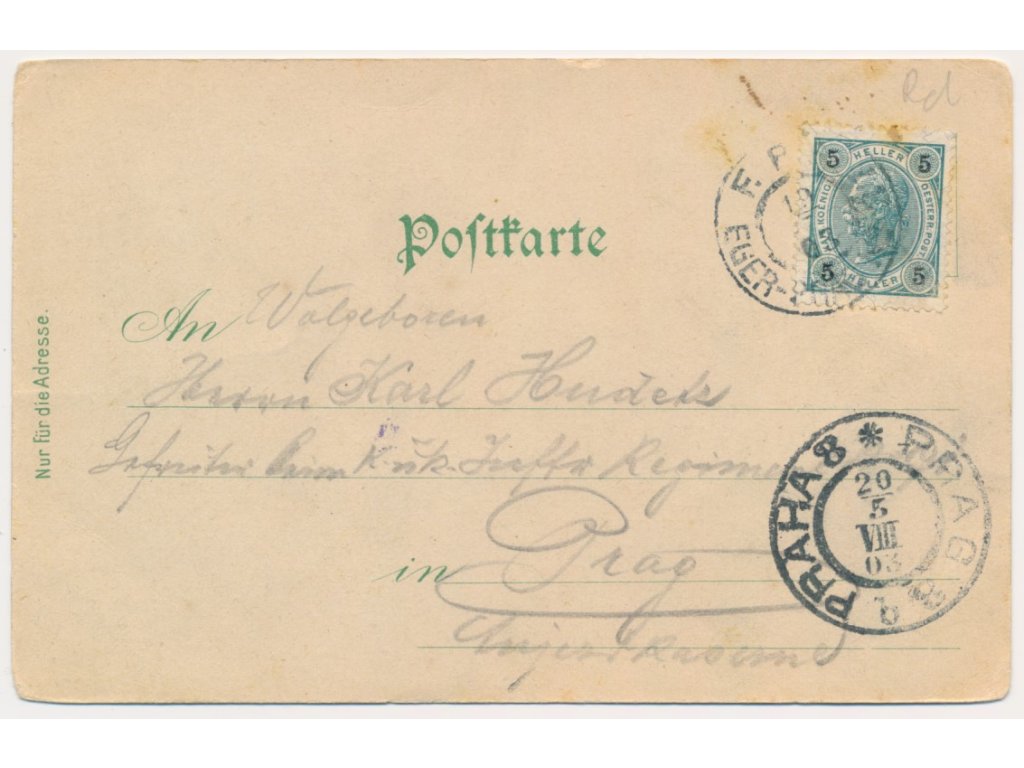 Rd
5 HELLER 5
KAIS. KOENIGL. OESTERR. POST.
5 HELLER 5
F. P.
EGER-
Postkarte
Nur für die Adresse.
An Wolgeboren
Herrn Karl Hudetz
Gefreiter beim k.u.k. Regiment
in Prag
PRAHA 8 * PRAG 8
20
5
VIII
03
b